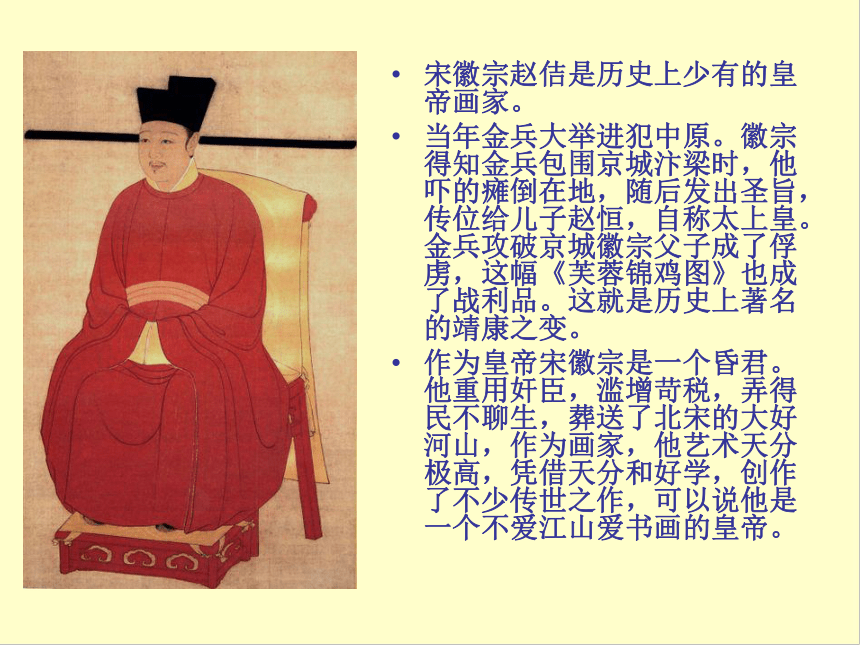 • 宋徽宗赵佶是历史上少有的皇
帝画家。
• 当年金兵大举进犯中原。徽宗
得知金兵包围京城汴梁时，他
吓的瘫倒在地，随后发出圣旨，
传位给儿子赵恒，自称太上皇。
金兵攻破京城徽宗父子成了俘
虏，这幅《芙蓉锦鸡图》也成
了战利品。这就是历史上著名
的靖康之变。
• 作为皇帝宋徽宗是一个昏君。
他重用奸臣，滥增苛税，弄得
民不聊生，葬送了北宋的大好
河山，作为画家，他艺术天分
极高，凭借天分和好学，创作
了不少传世之作，可以说他是
一个不爱江山爱书画的皇帝。